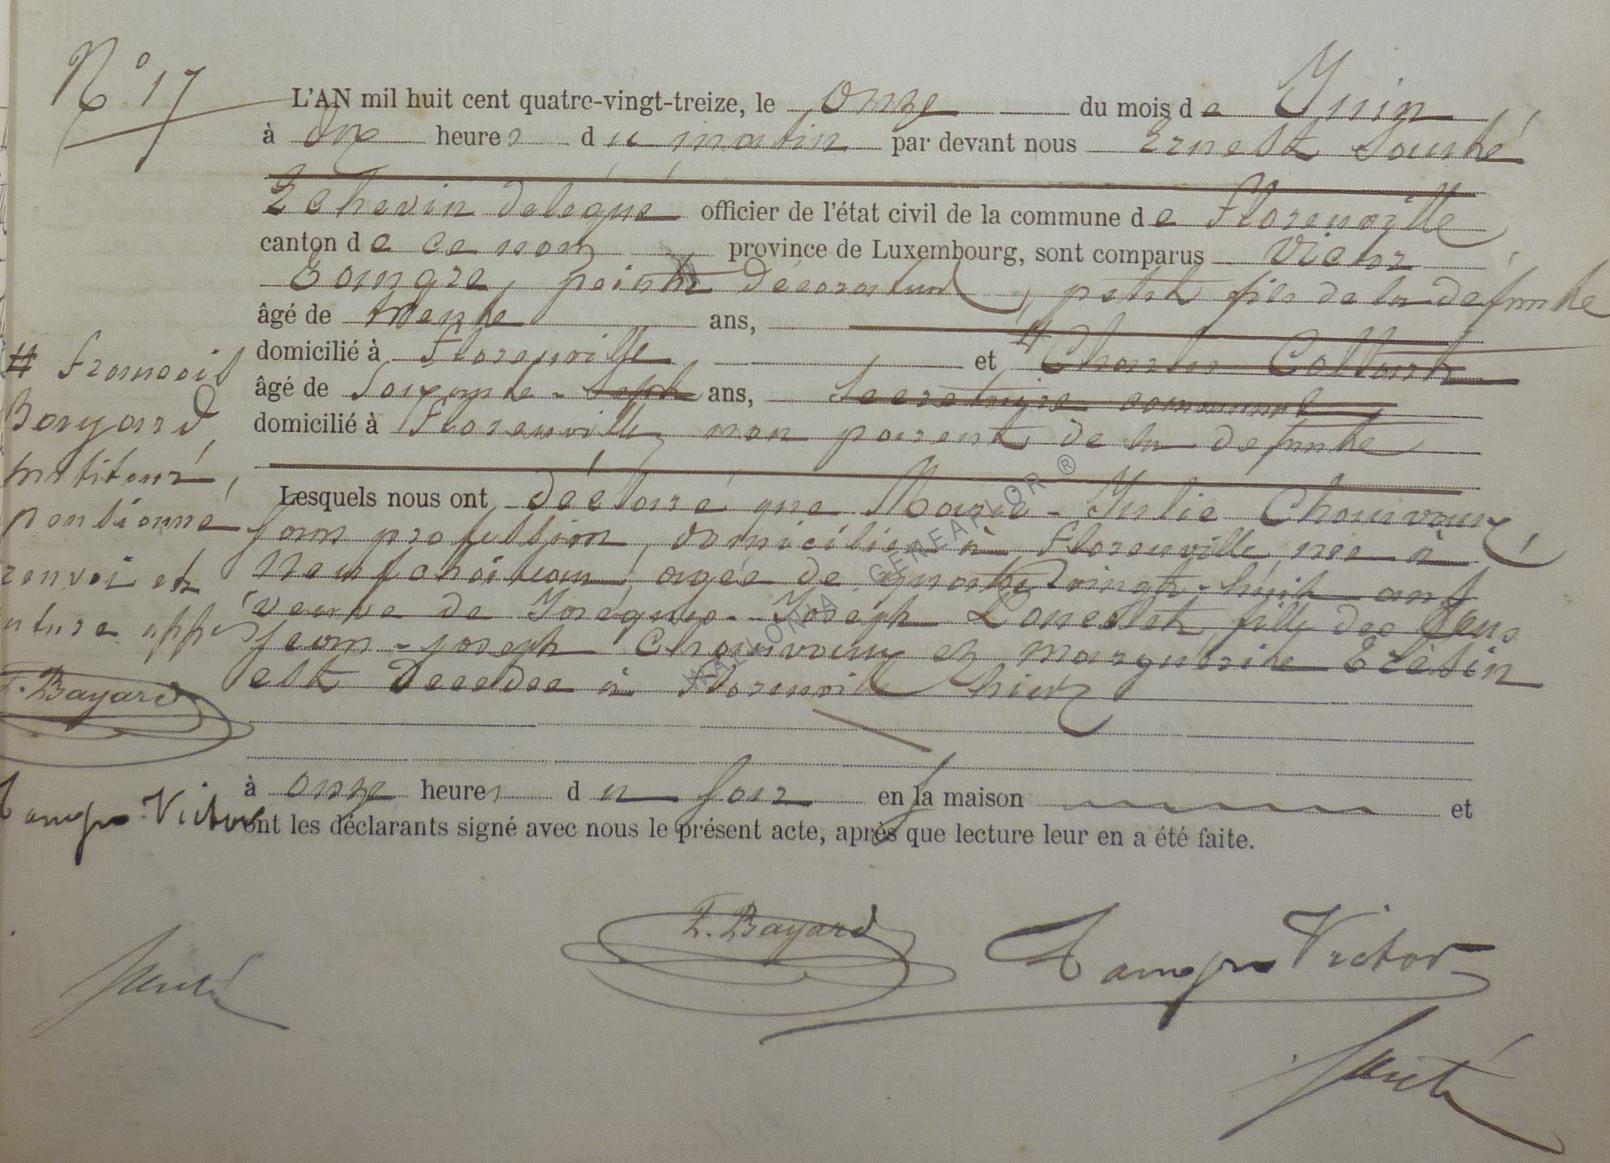 N° 17
L'AN mil huit cent quatre-vingt-treize, le onze du mois de Juin
à dix heures du matin par devant nous Ernest Santé
Echevin délégué officier de l'état civil de la commune de Florenville
canton de ce nom province de Luxembourg, sont comparus Victor
peintre Décorateur, petit fils de la défunte
âgé de trente ans,
domicilié à Florenville et # Charles Collard
âgé de Soixante-sept ans, Secrétaire communal
domicilié à Florenville non parent de la défunte
# François
Bayard,
instituteur,
pensionné
renvoi et
F. Bayard
Victor
Lesquels nous ont déclaré que Marie-Julie Chauvaux,
sans profession, domiciliée à Florenville née à
Neufchâteau, âgée de quatre vingt-huit ans
veuve de Jacques-Joseph fille des feus
Jean-Joseph Chauvaux et Marguerite
est Décédée à Florenville hier
à onze heures du soir en sa maison et
ont les déclarants signé avec nous le présent acte, après que lecture leur en a été faite.
F. Bayard Victor
Santé
Santé
WALLONIA GENEAFLOR ®